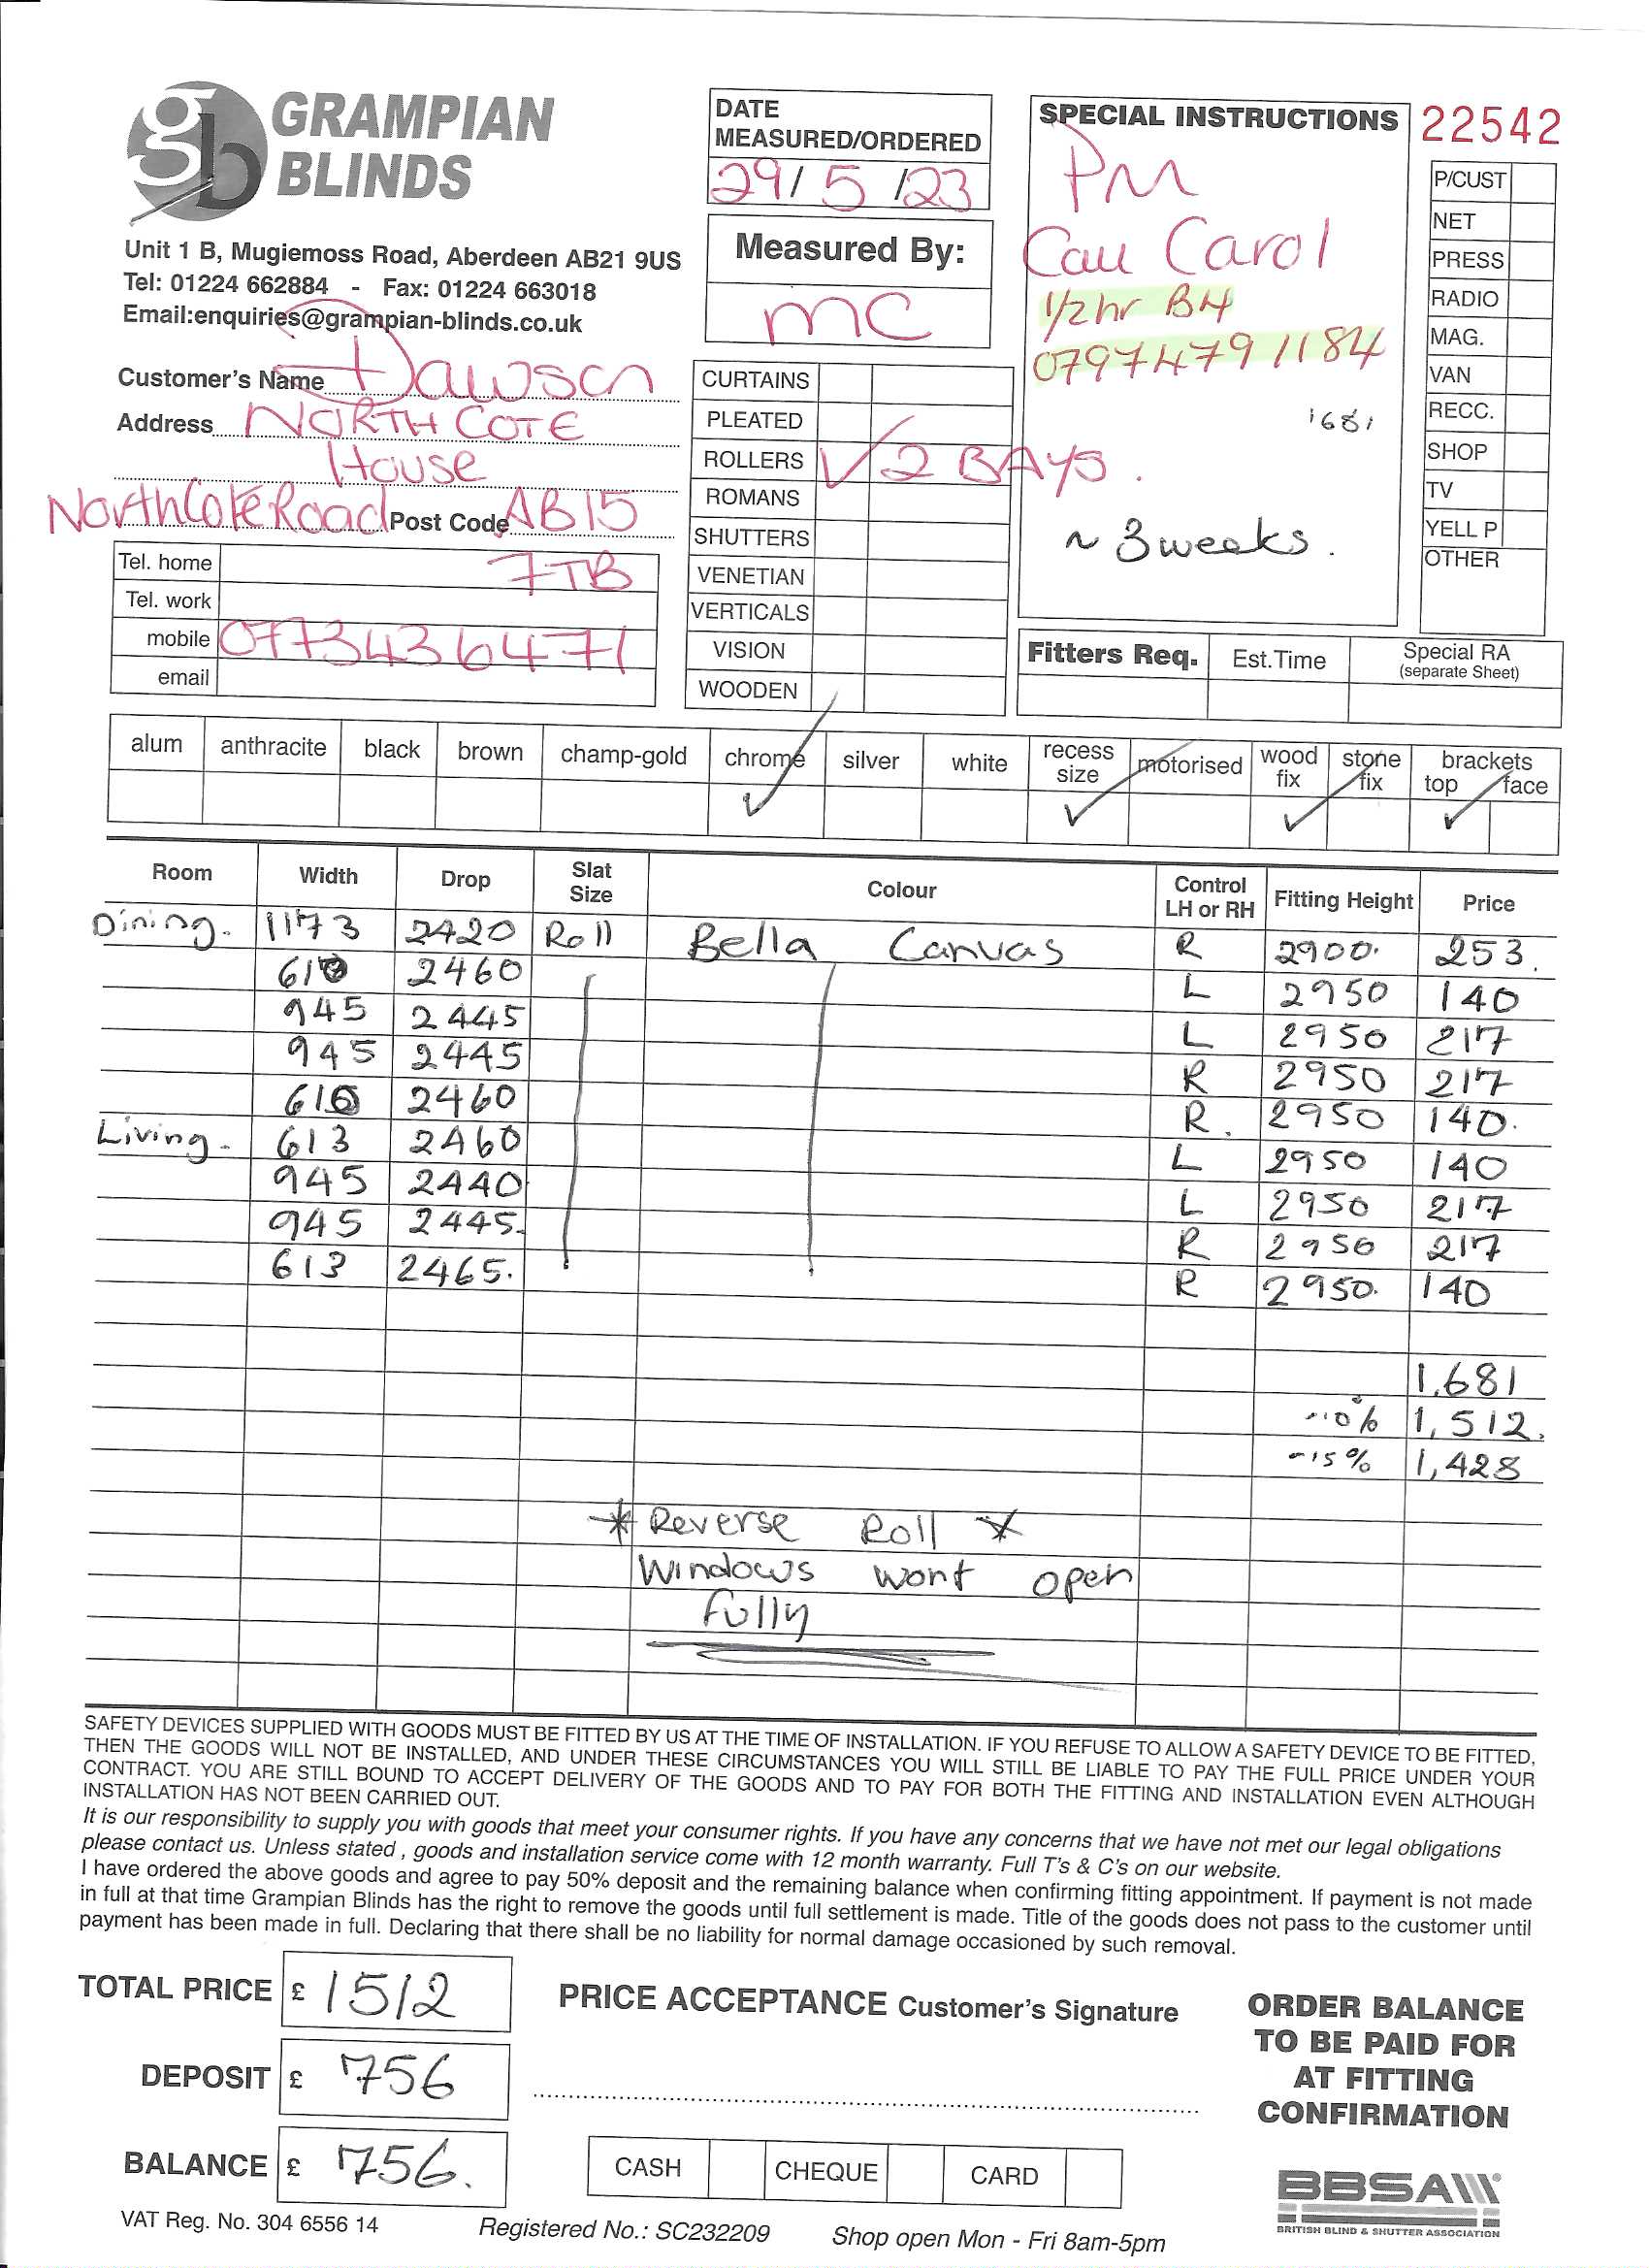 gb GRAMPIAN BLINDS
Unit 1 B, Mugiemoss Road, Aberdeen AB21 9US
Tel: 01224 662884 - Fax: 01224 663018
Email:enquiries@grampian-blinds.co.uk
DATE MEASURED/ORDERED
29/5/23
Measured By:
MC
SPECIAL INSTRUCTIONS
PM
Call Carol
1/2hr B4
07974791184
1681
~ 3 weeks.
22542
P/CUST
NET
PRESS
RADIO
MAG.
VAN
RECC.
SHOP
TV
YELL P
OTHER
Customer's Name Dawson
Address NORTH COTE
House
NorthCote Road Post Code AB15
7TB
Tel. home
Tel. work
mobile 0773436471
email
CURTAINS
PLEATED
ROLLERS ✓ 2 BAYS.
ROMANS
SHUTTERS
VENETIAN
VERTICALS
VISION
WOODEN
Fitters Req. Est.Time Special RA (separate Sheet)
alum anthracite black brown champ-gold chrome silver white recess size motorised wood fix stone fix brackets top face
✓ ✓ ✓ ✓
Room Width Drop Slat Size Colour Control LH or RH Fitting Height Price
Dining. 1173 2420 Roll Bella Canvas R 2900. 253.
610 2460 L 2950 140
945 2445 L 2950 217
945 2445 R 2950 217
610 2460 R. 2950 140.
Living. 613 2460 L 2950 140
945 2440 L 2950 217
945 2445. R 2950 217
613 2465. R 2950. 140
1,681
-10% 1,512.
-15% 1,428
* Reverse Roll *
Windows wont open
fully
SAFETY DEVICES SUPPLIED WITH GOODS MUST BE FITTED BY US AT THE TIME OF INSTALLATION. IF YOU REFUSE TO ALLOW A SAFETY DEVICE TO BE FITTED,
THEN THE GOODS WILL NOT BE INSTALLED, AND UNDER THESE CIRCUMSTANCES YOU WILL STILL BE LIABLE TO PAY THE FULL PRICE UNDER YOUR
CONTRACT. YOU ARE STILL BOUND TO ACCEPT DELIVERY OF THE GOODS AND TO PAY FOR BOTH THE FITTING AND INSTALLATION EVEN ALTHOUGH
INSTALLATION HAS NOT BEEN CARRIED OUT.
It is our responsibility to supply you with goods that meet your consumer rights. If you have any concerns that we have not met our legal obligations
please contact us. Unless stated , goods and installation service come with 12 month warranty. Full T's & C's on our website.
I have ordered the above goods and agree to pay 50% deposit and the remaining balance when confirming fitting appointment. If payment is not made
in full at that time Grampian Blinds has the right to remove the goods until full settlement is made. Title of the goods does not pass to the customer until
payment has been made in full. Declaring that there shall be no liability for normal damage occasioned by such removal.
TOTAL PRICE £ 1512
DEPOSIT £ 756
BALANCE £ 756.
PRICE ACCEPTANCE Customer's Signature
CASH CHEQUE CARD
ORDER BALANCE
TO BE PAID FOR
AT FITTING
CONFIRMATION
BBSA
BRITISH BLIND & SHUTTER ASSOCIATION
VAT Reg. No. 304 6556 14 Registered No.: SC232209 Shop open Mon - Fri 8am-5pm